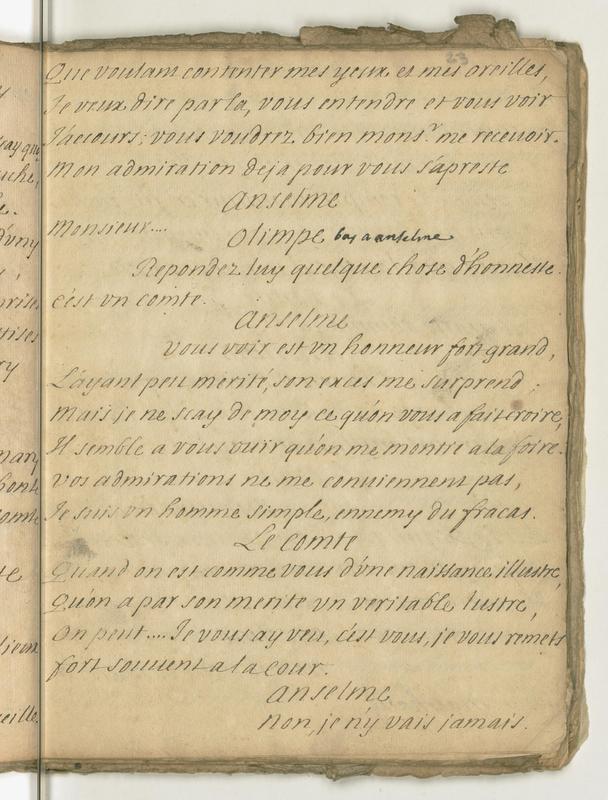 23
Que voulant contenter mes yeux et mes oreilles,
Je veux dire par la, vous entendre et vous voir
J'accours; vous voudrez bien mons.r me recevoir.
Mon admiration deja pour vous s'apreste
Anselme
Monsieur....
Olimpe bas a anselme
Repondez luy quelque chose d'honneste.
c'est un comte.
Anselme
vous voir est un honneur fort grand,
L'ayant peu merité, son exces me surprend;
Mais je ne scay de moy ce qu'on vous a fait croire,
Il semble a vous ouir qu'on me montre a la foire.
vos admirations ne me conviennent pas,
Je suis un homme simple, ennemy du fracas.
Le comte
Quand on est comme vous d'une naissance illustre,
Qu'on a par son merite un veritable lustre,
On peut.... Je vous ay veu, c'est vous, je vous remets
fort souvent a la cour.
Anselme
Non, je n'y vais jamais.